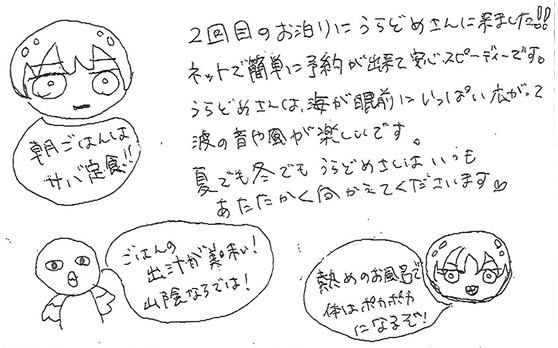 2回目のお泊りにうらどめさんに来ました!!
ネットで簡単に予約が出来て安心スピーディーです。
うらどめさんは、海が眼前にいっぱい広がって
波の音や風が楽しいです。
夏でも冬でもうらどめさんはいつも
あたたかく向かえてくださいます♡
朝ごはんは
サバ定食!!
ごはんの
出汁が美味い!
山陰ならでは!
熱めのお風呂で
体はポカポカ
になるぞ!